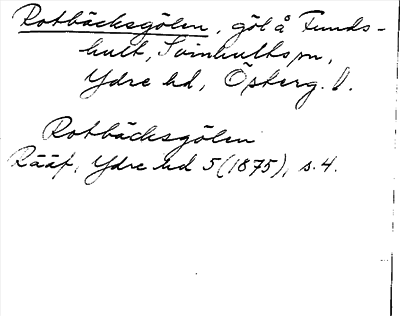 Rotbäcksgölen, göl å Funds-
hult, Svinhults sn,
Ydre hd, Österg. l.
Rotbäcksgölen
Rääf, Ydre hd 5 (1875), s. 4.